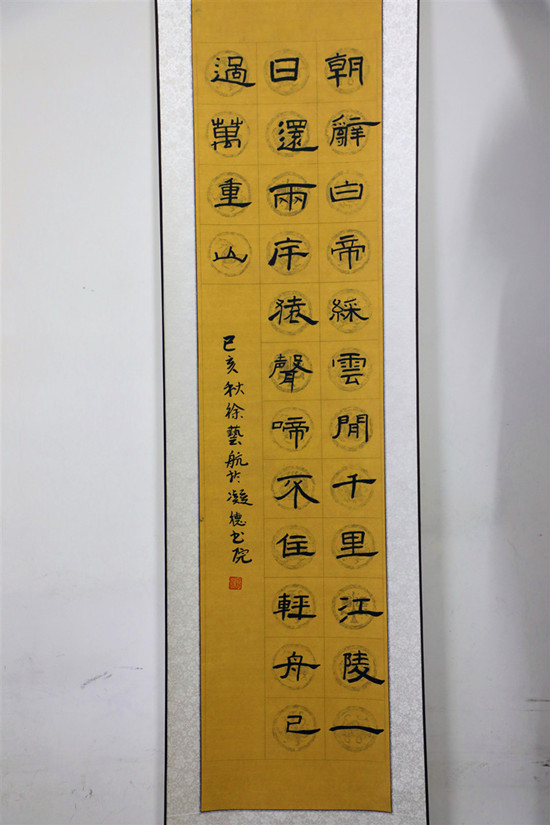 朝辭白帝綵雲間千里江陵一
日還兩岸猿聲啼不住輕舟已
過萬重山
己亥秋徐藝航於凝德書院